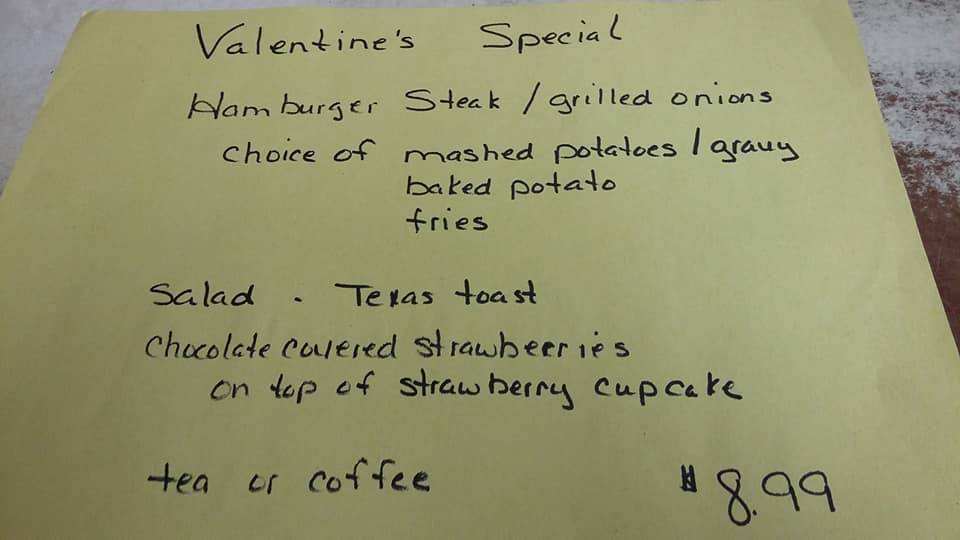 Valentine's Special
Hamburger Steak / grilled onions
choice of mashed potatoes / gravy
baked potato
fries
Salad . Texas toast
Chocolate covered strawbeerries
on top of strawberry cupcake
tea or coffee
$8.99